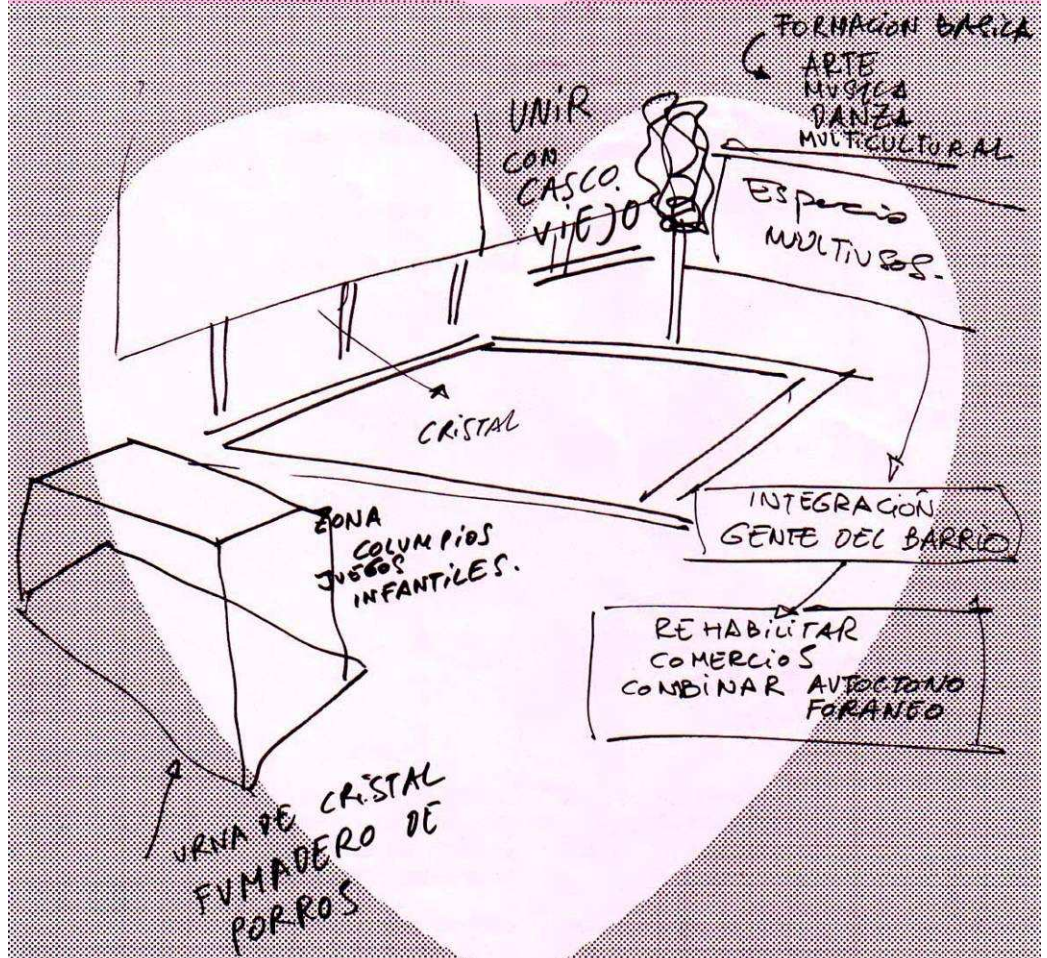 FORMACION BASICA
ARTE
MUSICA
DANZA
MULTICULTURAL
UNIR
CON
CASCO
VIEJO
ESpacio
MULTIUSOS.
CRISTAL
ZONA
COLUMPIOS
JUEGOS
INFANTILES.
INTEGRACIÓN
GENTE DEL BARRIO
REHABILITAR
COMERCIOS
COMBINAR AUTOCTONO
FORANEO
URNA DE CRISTAL
FUMADERO DE
PORROS